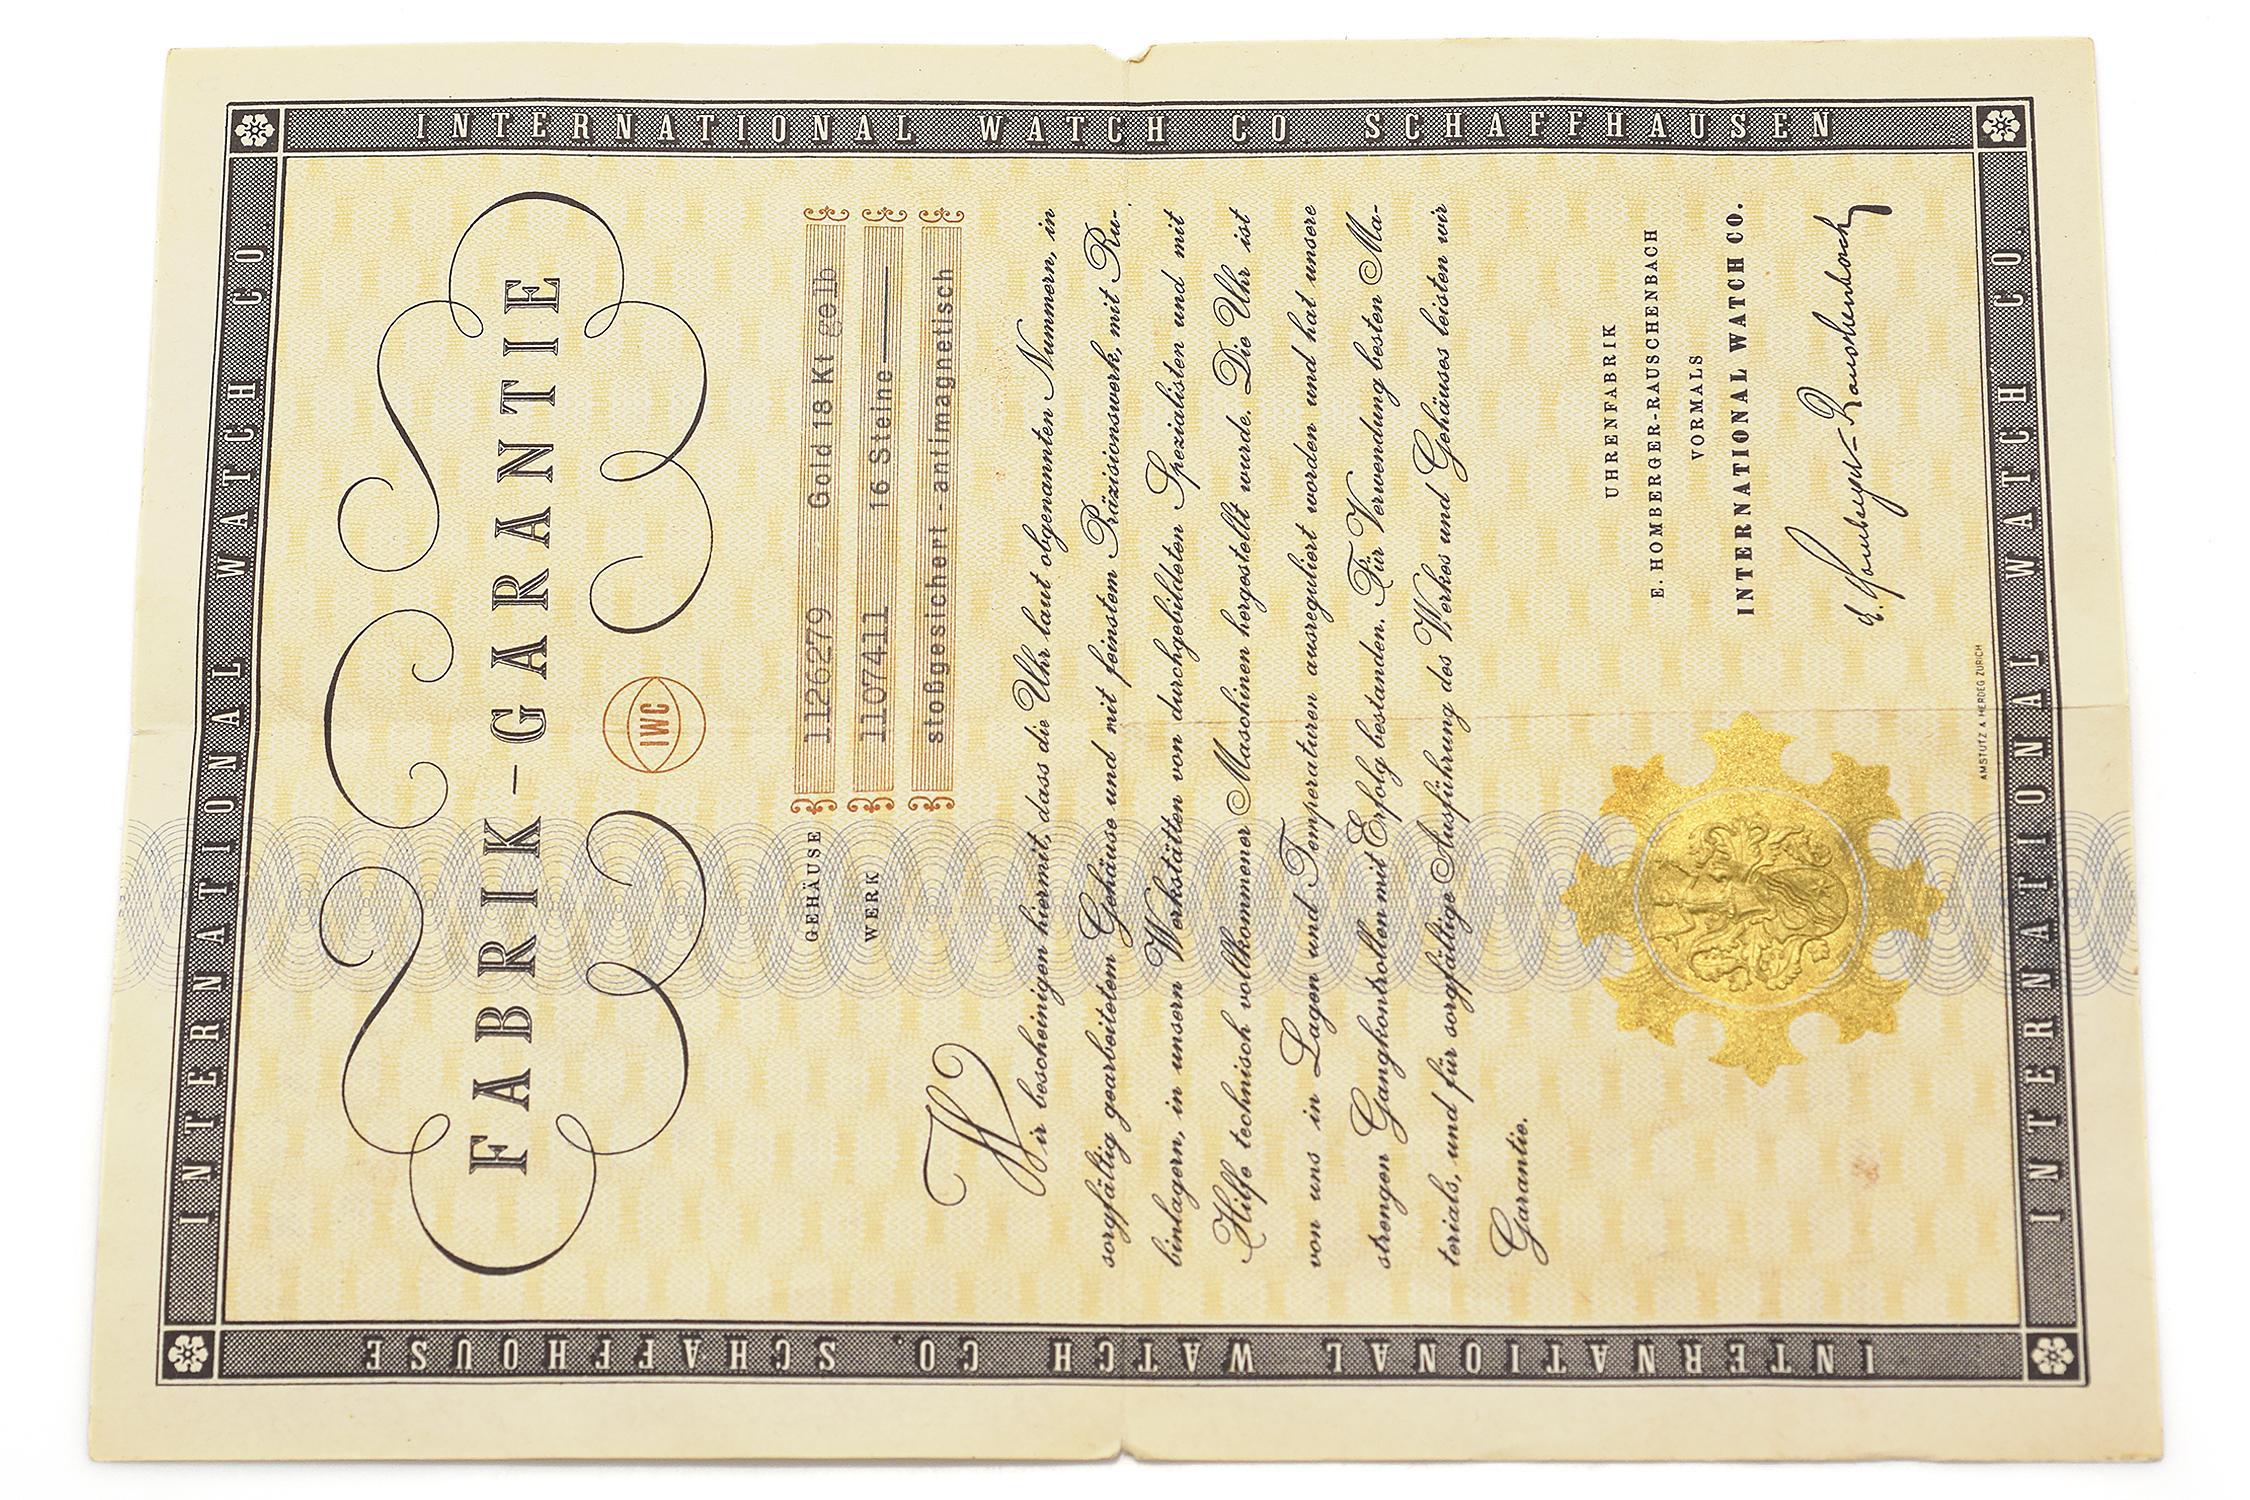 INTERNATIONAL WATCH CO
INTERNATIONAL WATCH CO SCHAFFHAUSEN
INTERNATIONAL WATCH CO. SCHAFFHOUSE
FABRIK-GARANTIE
IWC
GEHÄUSE 1126279 Gold 18 Kt gelb
WERK 1107411 16 Steine
stoßgesichert - antimagnetisch
Wir bescheinigen hiermit, dass die Uhr laut obgenannten Nummern, in
sorgfältig gearbeitetem Gehäuse und mit feinstem Präzisionswerk, mit Ru-
binlagern, in unsern Werkstätten von durchgebildeten Spezialisten und mit
Hilfe technisch vollkommener Maschinen hergestellt wurde. Die Uhr ist
von uns in Lagen und Temperaturen ausreguliert worden und hat unsere
strengen Gangkontrollen mit Erfolg bestanden. Für Verwendung besten Ma-
terials, und für sorgfältige Ausführung des Werkes und Gehäuses leisten wir
Garantie.
UHRENFABRIK
E. HOMBERGER-RAUSCHENBACH
VORMALS
INTERNATIONAL WATCH CO.
E. Homberger-Rauschenbach
AMSTUTZ & HERDEG ZÜRICH
INTERNATIONAL WATCH CO.